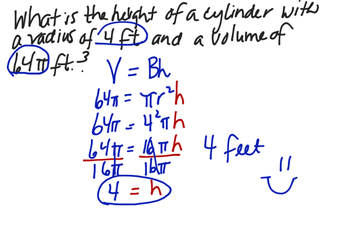 What is the height of a cylinder with
a radius of 4 ft and a volume of
64π ft.³?
V = Bh
64π = πr²h
64π = 4²πh
64π = 16πh 4 feet
16π 16π
4 = h